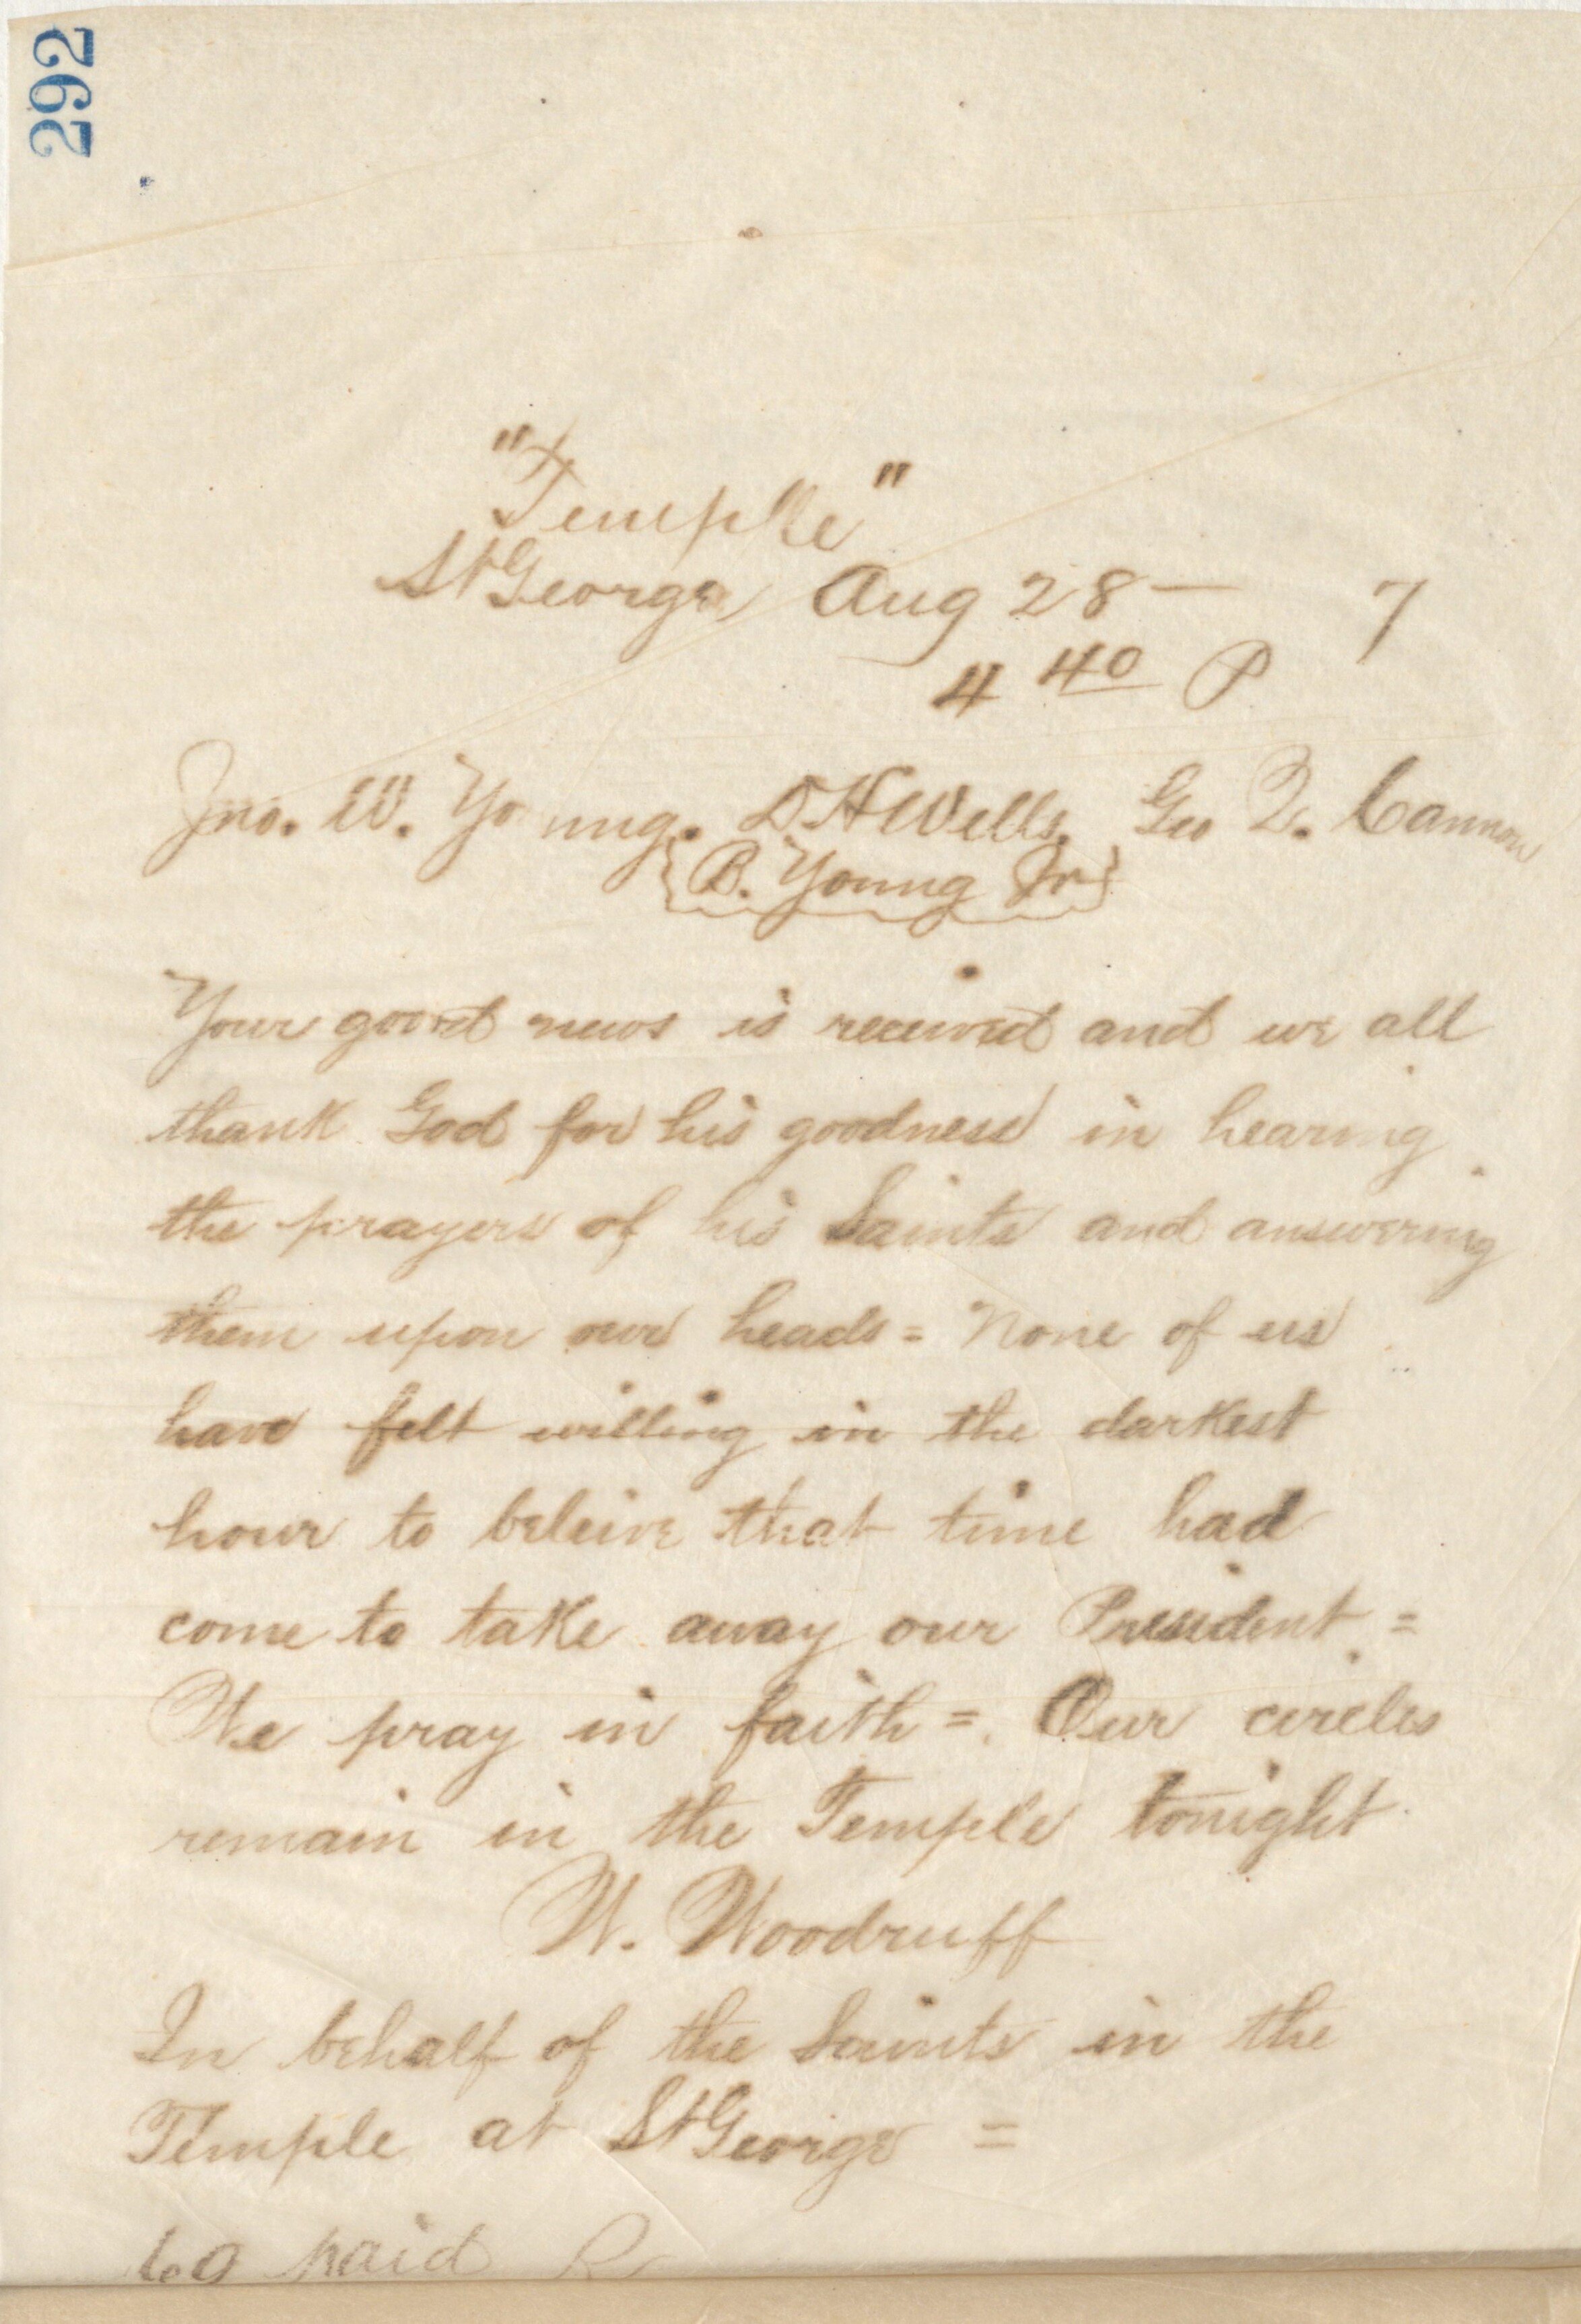 292
"Temple"
St George Aug 28 — 7
4 40 P
Jno. W. Young. D H Wells. Geo Q. Cannon
{B. Young Jr}
Your good news is received and we all
thank God for his goodness in hearing
the prayers of his Saints and answering
them upon our heads = None of us
have felt willing in the darkest
hour to beleive that time had
come to take away our President =
We pray in faith = Our circles
remain in the Temple tonight
W. Woodruff
In behalf of the Saints in the
Temple at St George =
60 paid R